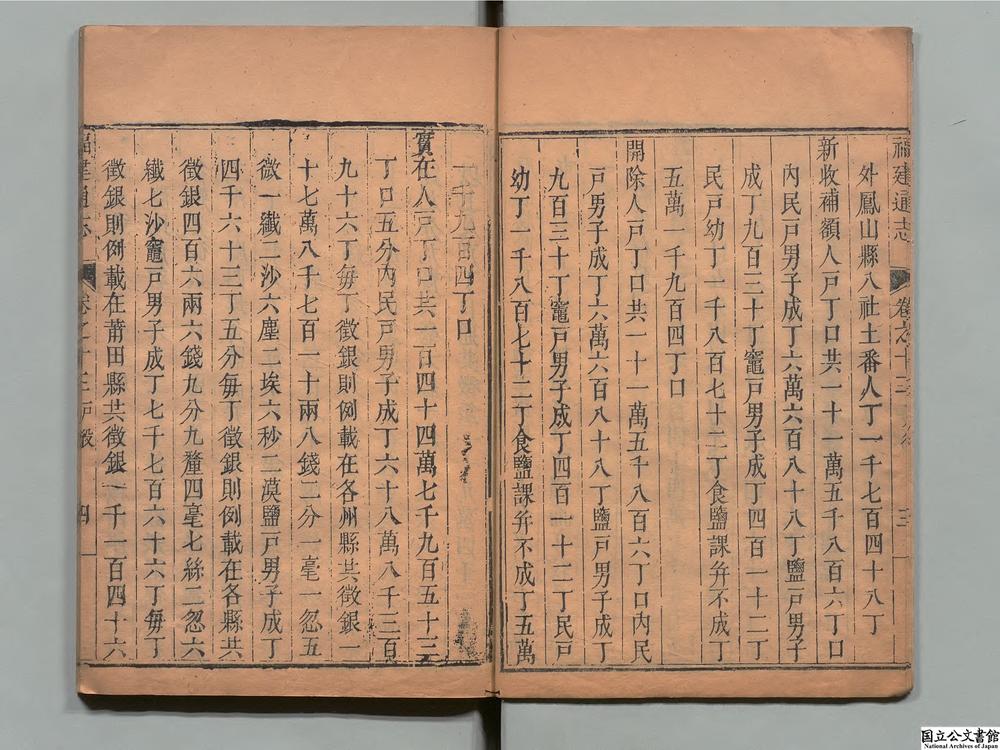 福建通志
外鳳山縣八社土番人丁一千七百四十八丁
新收補額人戶丁口共一十一萬五千八百六丁口
內民戶男子成丁六萬六百八十八丁鹽戶男子
成丁九百三十丁竈戶男子成丁四百一十二丁
民戶幼丁一千八百七十二丁食鹽課弁不成丁
五萬一千九百四丁口
開除人戶丁口共一十一萬五千八百六丁口內民
戶男子成丁六萬六百八十八丁鹽戶男子成丁
九百三十丁竈戶男子成丁四百一十二丁民戶
幼丁一千八百七十二丁食鹽課弁不成丁五萬
一千九百四丁口
實在人戶丁口共一百四十四萬七千九百五十三
丁口五分內民戶男子成丁六十八萬八千三百
九十六丁每丁徵銀則例載在各州縣共徵銀一
十七萬八千七百一十兩八錢二分一毫一忽五
微一纖二沙六塵二埃六秒二漠鹽戶男子成丁
四千六十三丁五分每丁徵銀則例載在各縣共
徵銀四百六兩六錢九分九釐四毫七絲二忽六
纖七沙竈戶男子成丁七千七百六十六丁每丁
徵銀則例載在莆田縣共徵銀一千一百四十六
福建通志 卷之十三 戶役 四
国立公文書館
National Archives of Japan